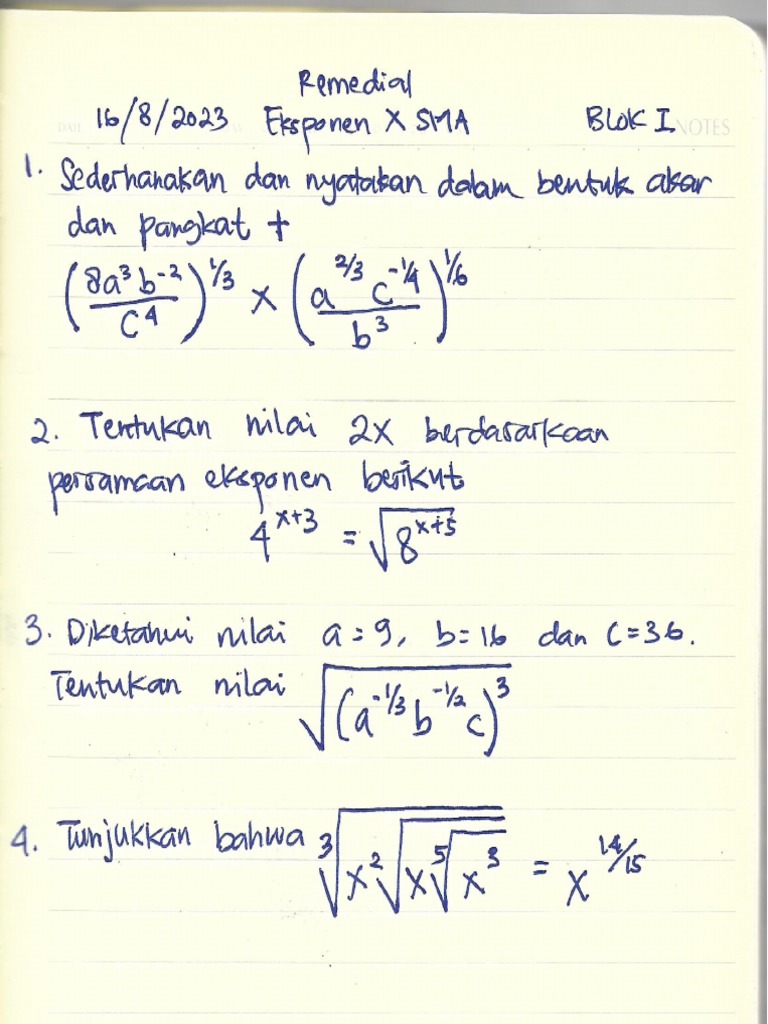 Remedial
16/8/2023 Eksponen X SMA BLOK I NOTES
1. Sederhanakan dan nyatakan dalam bentuk akar
dan pangkat +
(8a³b⁻²/c⁴)^1/3 × (a^2/3 c^-1/4/b³)^1/6
2. Tentukan nilai 2x berdasarkaan
persamaan eksponen berikut
4^x+3 = √8^x+5
3. Diketahui nilai a=9, b=16 dan c=36.
Tentukan nilai √(a^-1/3 b^-1/2 c)³
4. Tunjukkan bahwa ³√x²√x⁵√x³ = x^14/15